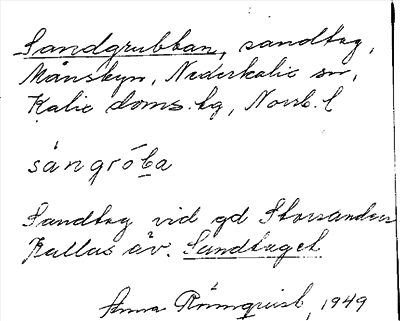 Sandgrubban, sandtag,
Månsbyn, Nederkalix sn,
Kalix doms.tg, Norrb. l
sángróba
Sandtag vid gd Storsanden
Kallas äv. Sandtaget
Anna Rönnquist, 1949